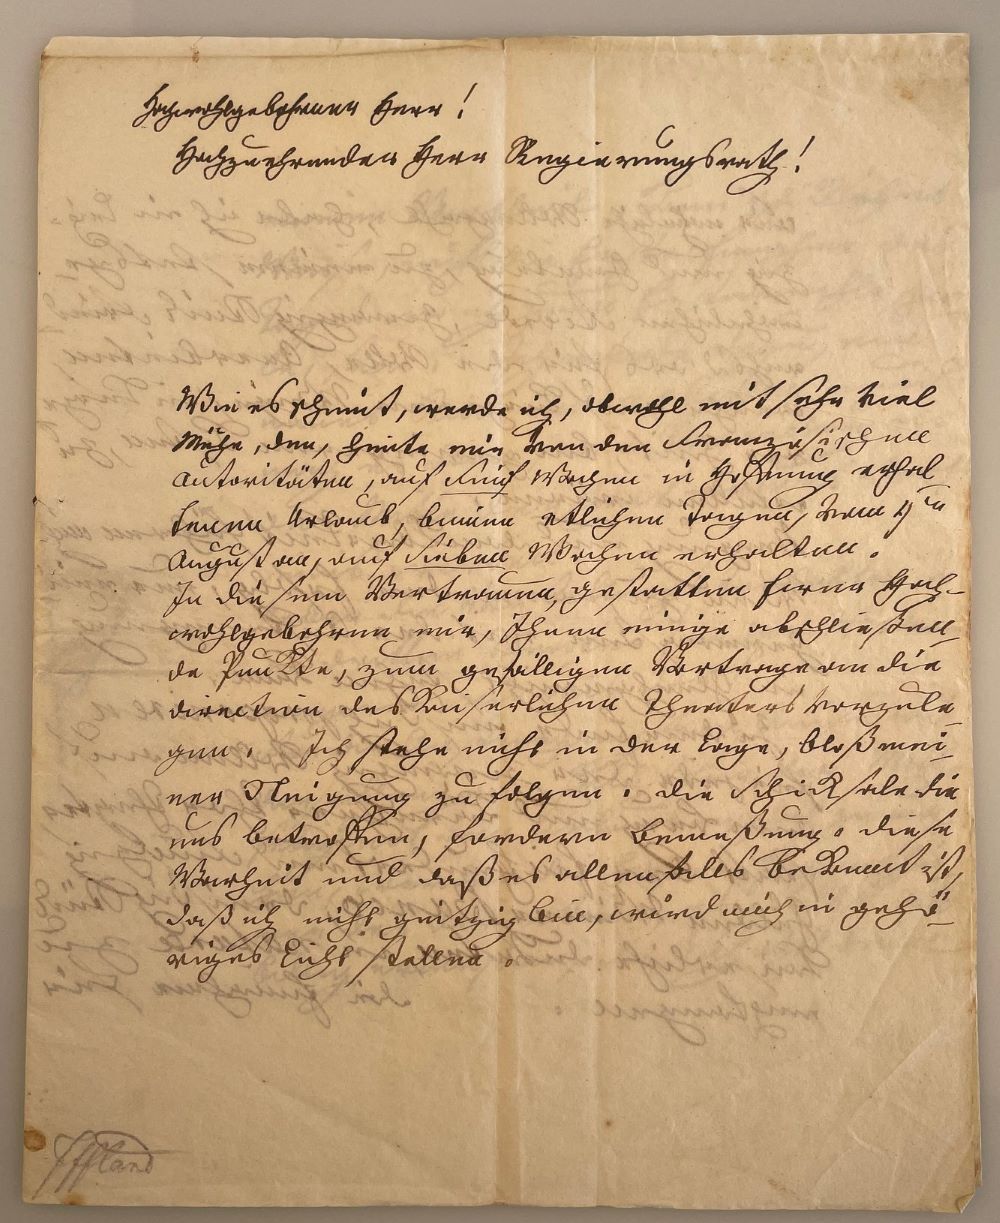 Hochwohlgebohrner Herr!
Hochzuehrender Herr Regierungsrath!
Wie es scheint, werde ich, obwohl mit sehr viel
Mühe, den, heute mir von den Französischen
Autoritäten, auf Fünf Wochen in Hofnung erhal
tenen Urlaub, binnen etlichen Tagen, vom
August an, auf Sieben Wochen erhalten.
In diesem Vertrauen, gestatten Euer Hoch-
wohlgebohren mir, Ihnen einige abschließen-
de Punkte, zum gefälligen Vortrage an die
Direction des Kaiserlichen Theaters vorzule-
gen. Ich stehe nicht in der Lage, bloß mei-
ner Neigung zu folgen. Die Schicksale die
uns betroffen, fordern Bemeßung. Diese
Warheit und daß es allenfalls bekannt ist,
daß ich nicht geitzig bin, wird mich in gehö-
riges Licht stellen.
Iffland